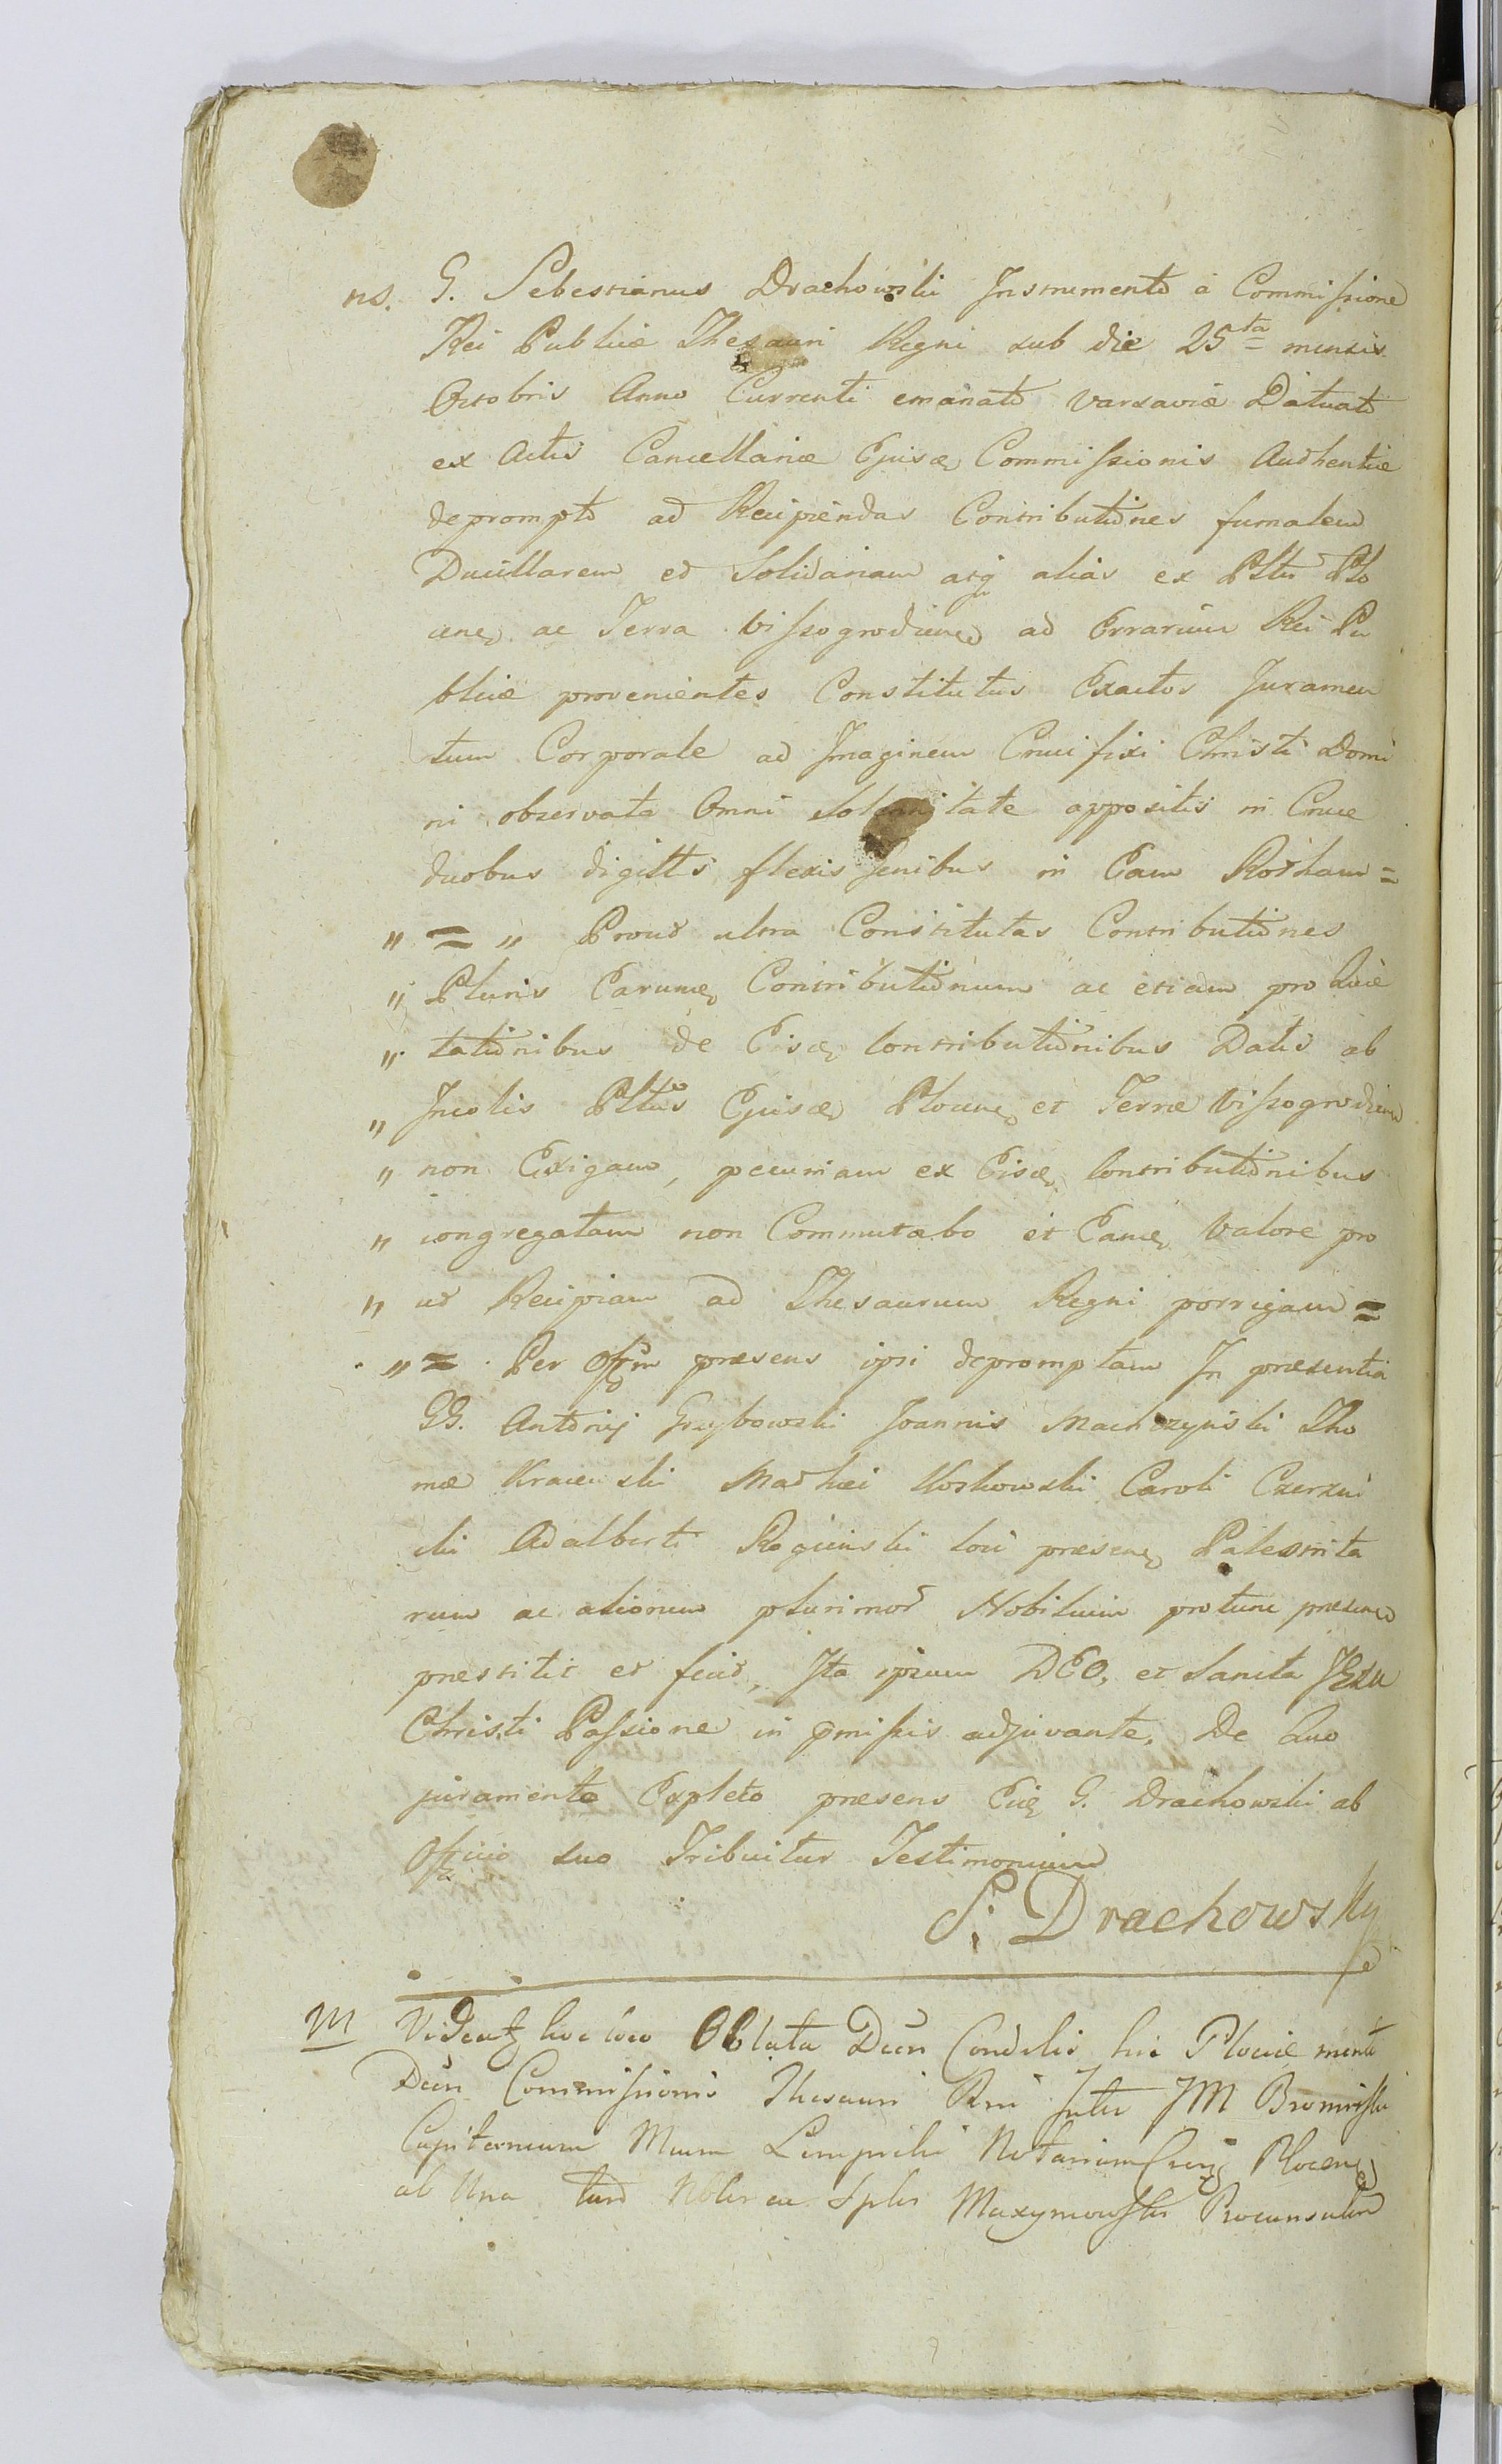 ns. G. Sebestianus Drachowski Instrumento á Commissione
Rei Publicæ Thesauri Regni sub die 25ta mensis
Octobris Anno Currenti emanato Varsaviæ Datuato
ex Actis Cancellariæ Ejusdę Commissionis Authentice
deprompto ad Recipiendas Contributiones fumalem
Ducillarem et Solidariam atq alias ex Plttu Plo
cenę ac Terra Vissogrodienę ad Errarium Rei Pu
blicæ provenientes Constitutus Exactor Juramen
tum Corporale ad Imaginem Crucifixi Christi Domi
ni observata Omni Solennitate appositis in Cruce
duobus digittis flexis genibus in Eam Rotham =
" = " Prout ultra Constitutas Contributiones
" Pluris Earumdę Contributionum ac etiam pro Quie
" tationibus de Eisdę Contributionibus Datis ab
" Incolis Plttus Ejusdę Plocenę et Terræ Vissogrodienę
" non Exigam, pecuniam ex Eisdę Contributionibus
" congregatam non Commutabo et Eamdę Valore pro
" ut Recipiam ad Thesaurum Regni porrigam =
" = Per Offm præsens ipsi depromptam In præsentia
GG. Antonij Grzybowski Joannis Machczynski Tho
mæ Kraiewski Mathei Koskowski Caroli Czerzni
cki Adalberti Rogienski loci præsenę Palestrita
rum ac aliorum plurimor Nobilium protunc præsenę
præstitit et fecit, Ita ipsum DEO, et Sancta JEsu
Christi Passione in pmissis adjuvante. De Quo
juramento Expleto præsens Eidę G. Drachowski ab
Officio suo Tribuitur Testimonium
S: Drachowsky
M Videatz hoc loco Oblata Decu Condelis hic Plociæ
Decu Commissionis Thesauri Rni Inter JM Bromirski
Capitaneum Mcum Lempicki Notarium Plocenę
ab Una Maxymowski Proconsulem